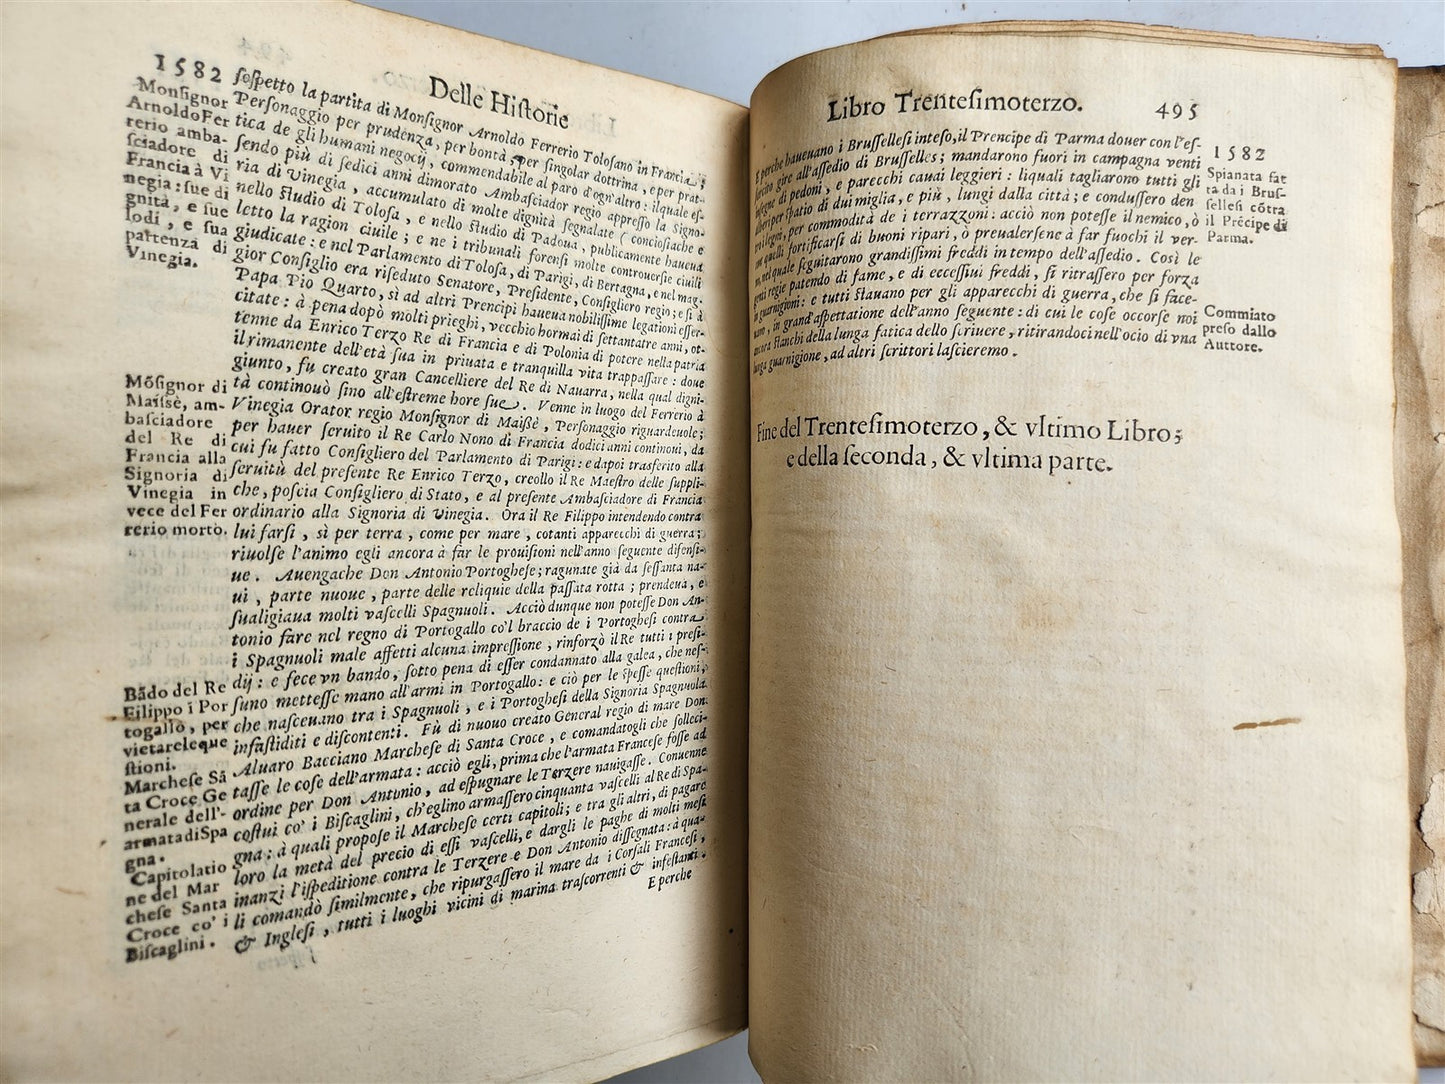 Delle Hiſtorie
1582
Monſignor
Arnoldo Fer
rerio amba-
ſciadore di
Francia à Vi
negia: ſue di
gnità, e ſue
lodi, e ſua
partenza di
Vinegia.
ſoſpetto la partita di Monſignor Arnoldo Ferrerio Toloſano in Francia;
Perſonaggio per prudenza, per bontà, per ſingolar dottrina, e per prat-
tica de gli humani negocij, commendabile al paro d'ogn'altro: ilquale eſ-
ſendo più di ſedici anni dimorato Ambaſciador regio appreſſo la Signo-
ria di Vinegia, accumulato di molte dignità ſegnalate (concioſiache e
nello ſtudio di Toloſa, e nello ſtudio di Padoua, publicamente haueua
letto la ragion ciuile; e ne i tribunali forenſi molte controuerſie ciuili
giudicate: e nel Parlamento di Toloſa, di Parigi, di Bertagna, e nel mag-
gior Conſiglio era riſeduto Senatore, Preſidente, Conſigliero regio; e ſi à
Papa Pio Quarto, sì ad altri Prencipi haueua nobiliſſime legationi eſſer-
citate: à pena dopò molti prieghi, vecchio hormai di ſettantatre anni, ot-
tenne da Enrico Terzo Re di Francia e di Polonia di potere nella patria
il rimanente dell'età ſua in priuata e tranquilla vita trappaſſare: doue
giunto, fù creato gran Cancelliere del Re di Nauarra, nella qual digni-
tà continouò ſino all'eſtreme hore ſue. Venne in luogo del Ferrerio à
Vinegia Orator regio Monſignor di Maiſsè, Perſonaggio riguardeuole;
per hauer ſeruito il Re Carlo Nono di Francia dodici anni continoui, da
cui fu fatto Conſigliero del Parlamento di Parigi: e dapoi trasferito alla
ſeruitù del preſente Re Enrico Terzo, creollo il Re Maeſtro delle ſuppli-
che, poſcia Conſigliero di Stato, e al preſente Ambaſciadore di Francia
ordinario alla Signoria di Vinegia. Ora il Re Filippo intendendo contra
lui farſi, sì per terra, come per mare, cotanti apparecchi di guerra;
riuolſe l'animo egli ancora à far le prouiſioni nell'anno ſeguente difenſi-
ue. Auengache Don Antonio Portogheſe; ragunate già da ſeſſanta na-
ui, parte nuoue, parte delle reliquie della paſſata rotta; prendeua, e
ſualigiaua molti vaſcelli Spagnuoli. Acciò dunque non poteſſe Don An-
tonio fare nel regno di Portogallo co'l braccio de i Portogheſi contra
i Spagnuoli male affetti alcuna impreſſione, rinforzò il Re tutti i preſi-
dij: e fece vn bando, ſotto pena di eſſer condannato alla galea, che neſ-
ſuno metteſſe mano all'armi in Portogallo: e ciò per le ſpeſſe queſtioni,
che naſceuano tra i Spagnuoli, e i Portogheſi della Signoria Spagnuola
infaſtiditi e diſcontenti. Fù di nuouo creato General regio di mare Don
Aluaro Bacciano Marcheſe di Santa Croce, e comandatogli che ſolleci-
taſſe le coſe dell'armata: acciò egli, prima che l'armata Franceſe foſſe ad
ordine per Don Antonio, ad eſpugnare le Terzere nauigaſſe. Conuenne
coſtui co' i Biſcaglini, ch'eglino armaſſero cinquanta vaſcelli al Re di Spa-
gna: à quali propoſe il Marcheſe certi capitoli; e tra gli altri, di pagare
loro la metà del precio di eſſi vaſcelli, e dargli le paghe di molti meſi
inanzi l'iſpeditione contra le Terzere e Don Antonio diſſegnata: à qua-
li comandò ſimilmente, che ripurgaſſero il mare da i Corſali Franceſi,
& Ingleſi, tutti i luoghi vicini di marina traſcorrenti & infeſtanti.
E perche
Mõſignor di
Maiſsè, am-
baſciadore
del Re di
Francia alla
Signoria di
Vinegia in
vece del Fer
rerio morto.
Bãdo del Re
Filippo ĩ Por
togallo, per
vietare le que
ſtioni.
Marcheſe Sã
ta Croce Ge
nerale dell'-
armata di Spa
gna.
Capitolatio
ne del Mar
cheſe Santa
Croce co' i
Biſcaglini.
Libro Trenteſimoterzo. 495
E perche haueuano i Bruſſelleſi inteſo, il Prencipe di Parma douer con l'eſ-
ſercito gire all'aſſedio di Bruſſelles; mandarono fuori in campagna venti
inſegne di pedoni, e parecchi cauai leggieri: liquali tagliarono tutti gli
alberi per ſpatio di dui miglia, e più, lungi dalla città; e conduſſero den
tro il legno, per commodità de i terrazzoni: acciò non poteſſe il nemico, ò
con quelli fortificarſi di buoni ripari, ò preualerſene à far fuochi il ver-
no, nel quale ſeguitarono grandiſſimi freddi in tempo dell'aſſedio. Così le
genti regie patendo di fame, e di ecceſſiui freddi, ſi ritraſſero per forza
in guarnigioni: e tutti ſtauano per gli apparecchi di guerra, che ſi face-
uano, in grand'aſpettatione dell'anno ſeguente: di cui le coſe occorſe noi
ancora ſtanchi della lunga fatica dello ſcriuere, ritirandoci nell'ocio di vna
lunga guarnigione, ad altri ſcrittori laſcieremo.
1582
Spianata fat
ta da i Bruſ-
ſelleſi cõtra
il Prẽcipe di
Parma.
Commiato
preſo dallo
Auttore.
Fine del Trenteſimoterzo, & vltimo Libro;
e della ſeconda, & vltima parte.